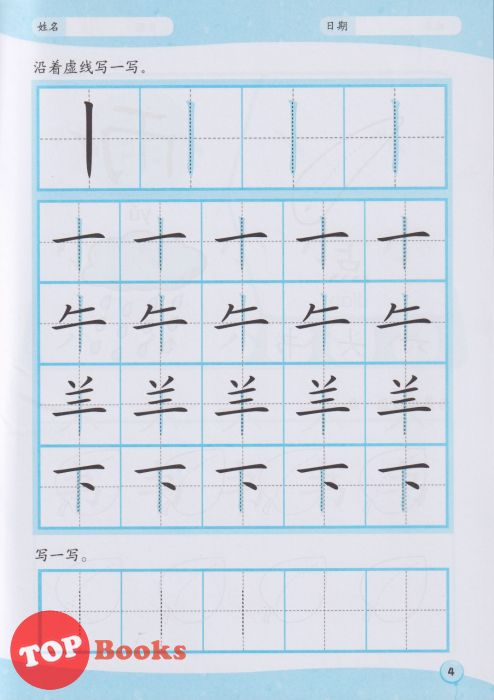 姓名 日期
沿着虚线写一写。
丨 丨 丨 丨
十 十 十 十 十
午 午 午 午 午
羊 羊 羊 羊 羊
下 下 下 下 下
写一写。
TOP Books
4